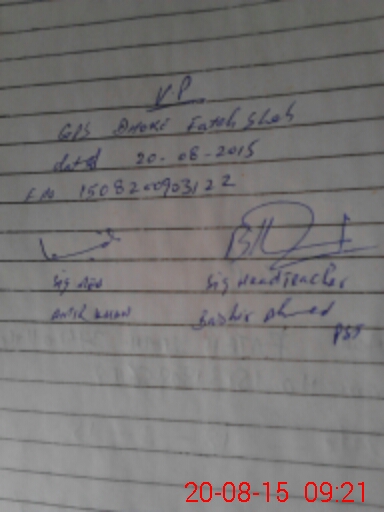 V.P
GPS DHOKE Fateh Shah
dated 20-08-2015
1508200903122
Sig Headteacher
Bashir Ahmed
PST
20-08-15 09:21